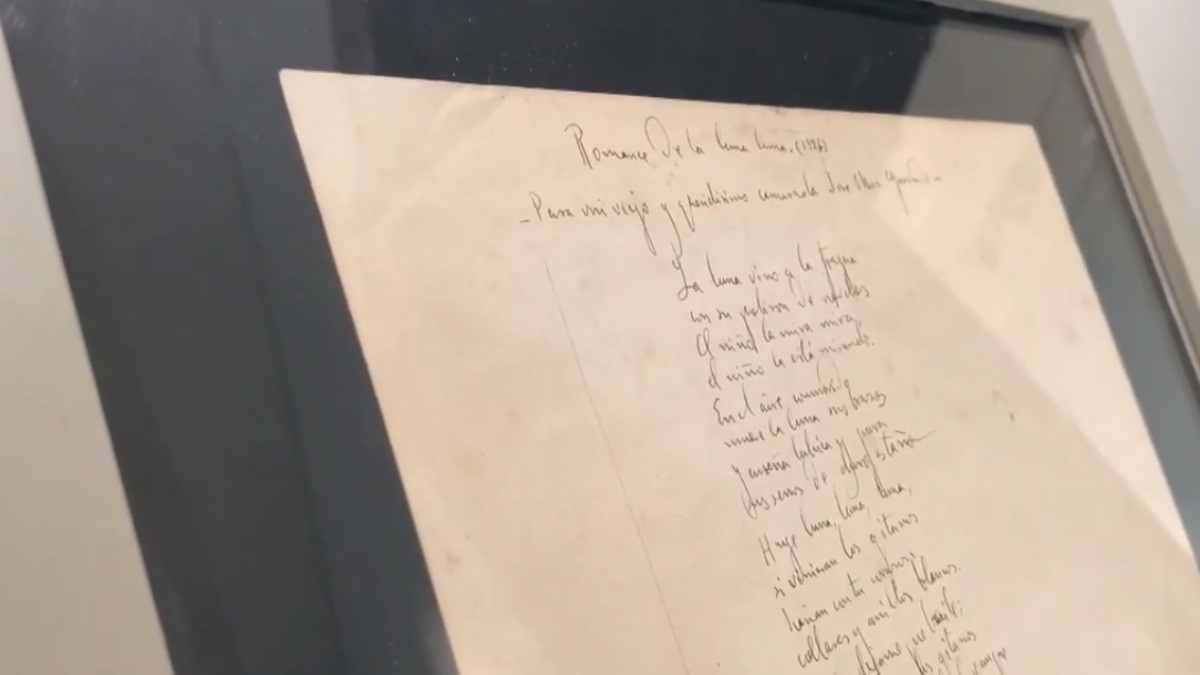 Romance de la luna luna. (1926)
- Para mi viejo y queridísimo camarada José
La luna vino a la fragua
con su polisón de nardos
el niño la mira mira,
el niño la está mirando.
En el aire conmovido
mueve la luna sus brazos
y enseña lúbrica y pura
sus senos de duro estaño
Huye luna, luna, luna,
si vinieran los gitanos
harían con tu corazon,
collares y anillos blancos.
déjame que baile;
los gitanos